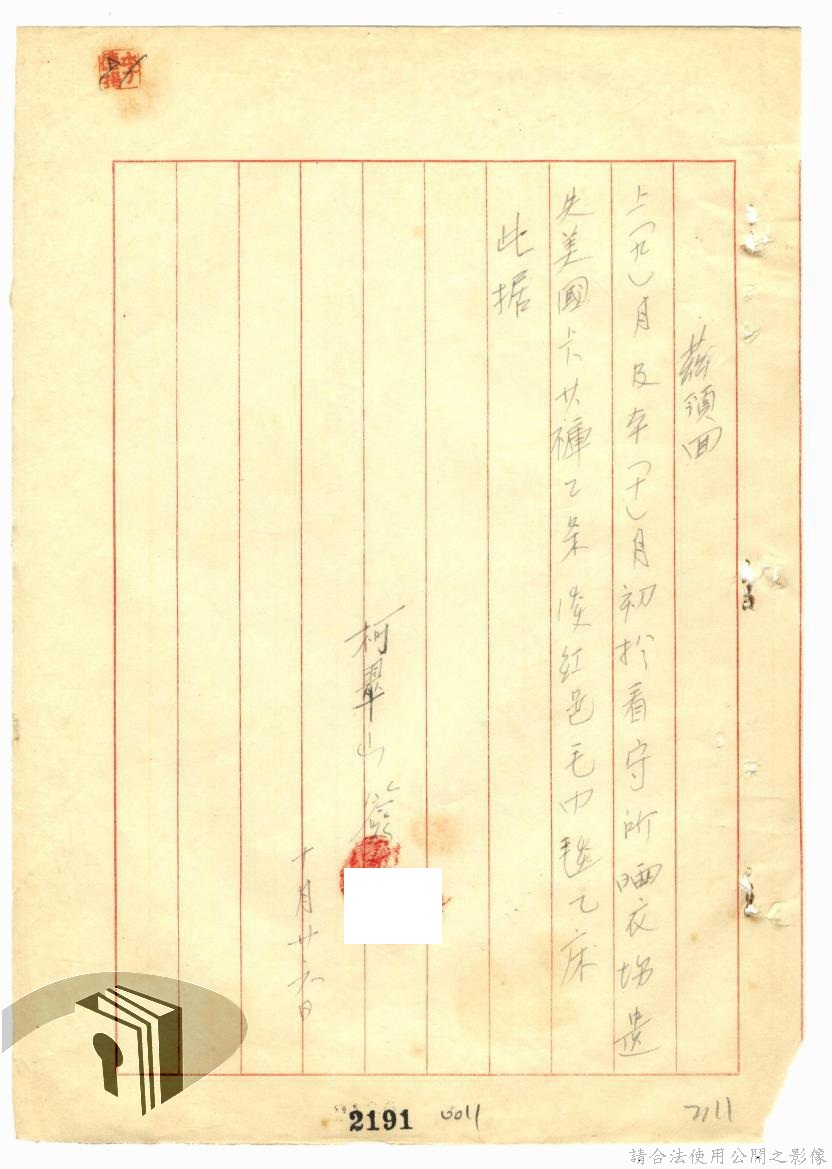 茲領回
上(九)月及本(十)月初於看守所晒衣場遺
失美國卡其褲乙条 淡紅色毛巾毯乙床
此据
柯翠山
十月廿六日
2191
0011
請合法使用公開之影像